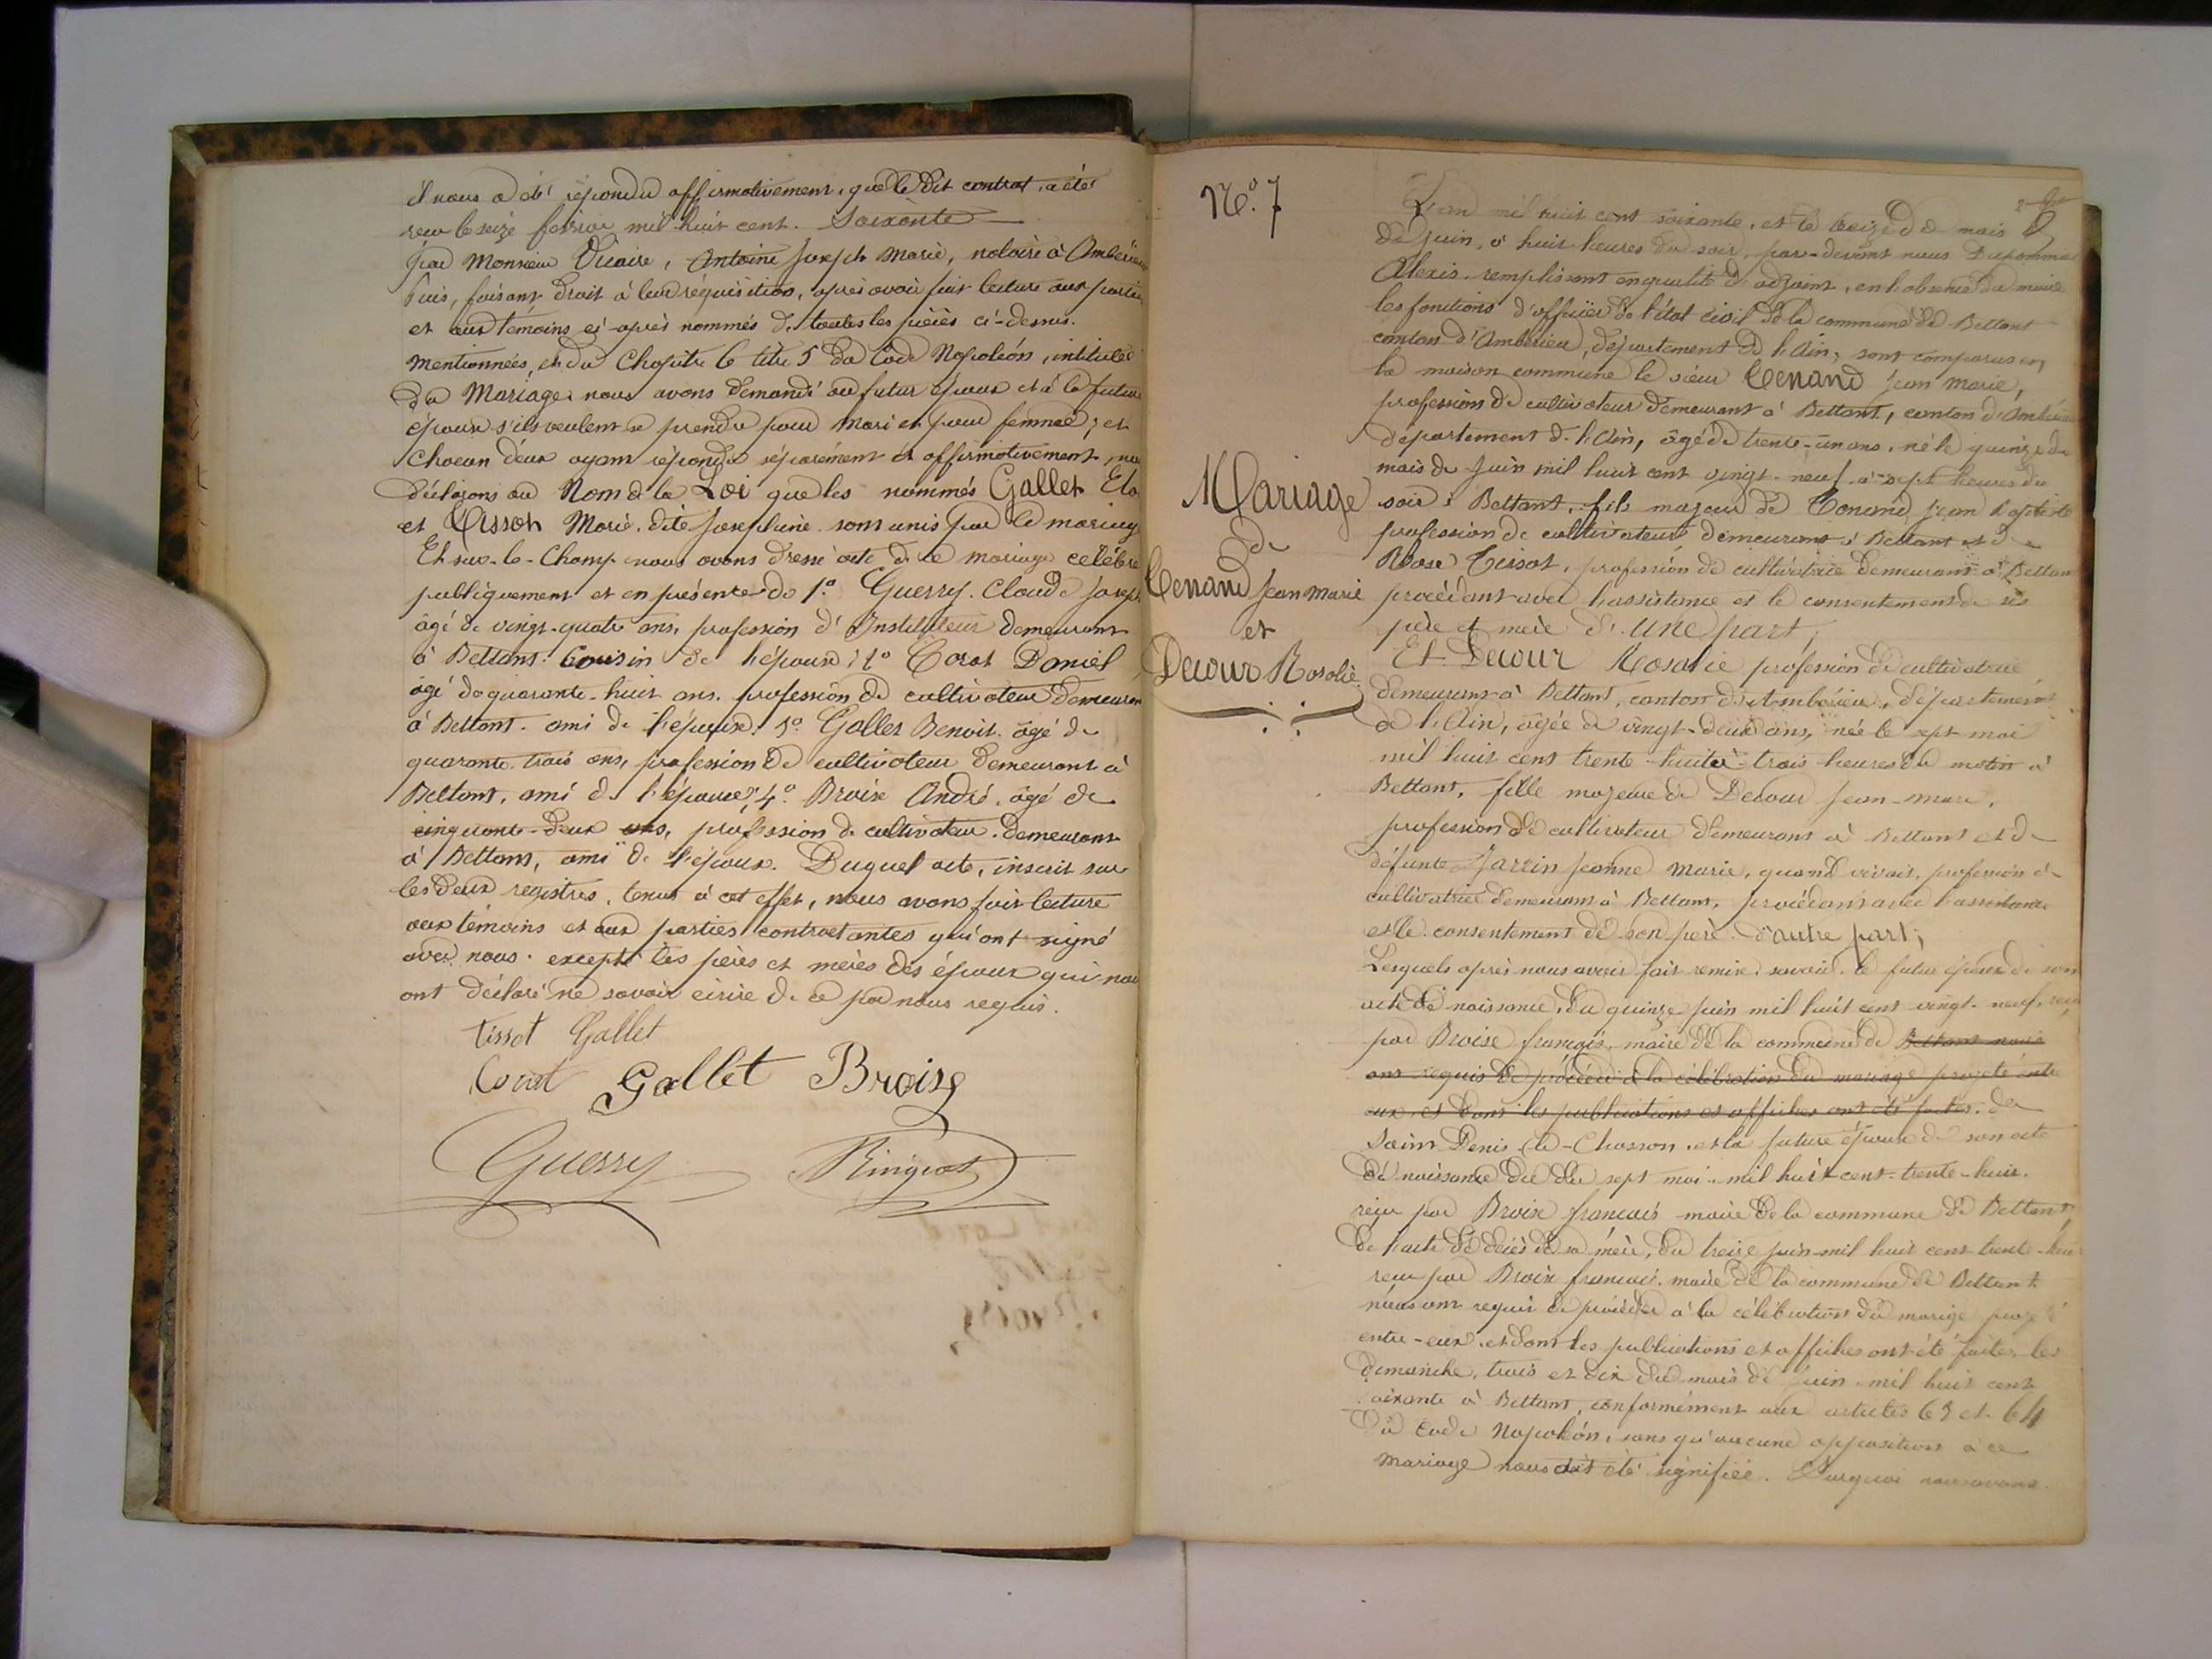 il nous a été répondu affirmativement, que le dit contrat, a été
reçu le seize février mil huit cent. Soixante
par Monsieur Vicaire, Antoine Joseph Marie, notaire à Ambérieu
Puis, faisant droit à leur réquisition, après avoir fait lecture aux parties
et aux témoins ci-après nommés de toutes les pièces ci-dessus.
mentionnées, et du Chapitre 6 titre 5 du Code Napoléon, intitulé
du Mariage, nous avons demandé au futur époux et à la future
épouse s'ils veulent se prendre pour mari et pour femme; et
chacun d'eux ayant répondu séparément et affirmativement, nous
déclarons au Nom de la Loi que les nommés Gallet
et Tissot Marie, dite Josephine sont unis par le mariage
Et sur-le-Champ nous avons dressé acte de ce mariage célébré
publiquement et en présence de 1º Guerry Claude Joseph
âgé de vingt-quatre ans, profession d'Instituteur demeurant
à Bettant. Cousin de l'épouse; 2º Corat Daniel
âgé de quarante-huit ans. profession de cultivateur demeurant
à Bettant. ami de l'époux. 3º Gallet Benoit. âgé de
quarante trois ans, profession de cultivateur demeurant à
Bettant, ami de l'épouse; 4º. Broise André, âgé de
cinquante-deux ans, profession de cultivateur. demeurant
à Bettant, ami de l'époux. Duquel acte, inscrit sur
les deux registres, tenus à cet effet, nous avons fait lecture
aux témoins et aux parties contractantes qui ont signé
avec nous. excepté les pères et mères des époux qui nous
ont déclaré ne savoir écrire de ce par nous requis.
Tissot Gallet
Gallet Broise
Guerry
Nº. 7
Mariage
de
Tenand Jean Marie
et
Decour Rosalie
L'an mil huit cent soixante, et le treize du mois
de Juin, à huit heures du soir, par-devant nous Dupommier
Alexis. remplissant en qualité d'adjoint, en l'absence du maire
les fonctions d'officier de l'état civil de la commune de Bettant
canton d'Ambérieu, département de l'Ain, sont comparus en
la maison commune le sieur Tenand Jean Marie,
profession de cultivateur demeurant à Bettant, canton d'Ambérieu
département de l'Ain, âgé de trente-un ans, né le quinze du
mois de Juin mil huit cent vingt-neuf à sept heures du
soir à Bettant, fils majeur de Tenand Jean Baptiste
profession de cultivateur demeurant à Bettant et de
Rose Tissot, profession de cultivatrice demeurant à Bettant
procédant avec l'assistance et le consentement de ses
père et mère d'une part;
Et Decour Rosalie profession de cultivatrice
demeurant à Bettant, canton d'Ambérieu, département
de l'Ain, âgée de vingt-deux ans, née le sept mai
mil huit cent trente-huit à trois heures du matin à
Bettant, fille majeure de Decour Jean-Marie,
profession de cultivateur demeurant à Bettant et de
défunte Jarrin Jeanne Marie, quand vivait, profession de
cultivatrice demeurant à Bettant, procédant avec l'assistance
et le consentement de son père d'autre part;
Lesquels après nous avoir fait remise, savoir: le futur époux de son
acte de naissance, du quinze juin mil huit cent vingt-neuf, reçu
par Broise françois, maire de la commune de Bettant nous
ont requis de procéder à la célébration du mariage projeté entre
eux, et dont les publications et affiches ont été faites. de
Saint Denis-le-Chosson, et la future épouse de son acte
de naissance du sept mai mil huit cent trente-huit.
reçu par Broise françois maire de la commune de Bettant,
de l'acte de décès de sa mère, du treize juin mil huit cent trente-huit
reçu par Broise françois. maire de la commune de Bettant
nous ont requis de procéder à la célébration du mariage projeté
entre-eux, et dont les publications et affiches ont été faites, les
dimanche, trois et dix du mois de juin mil huit cent
soixante à Bettant, conformément aux articles 63 et 64
du Code Napoléon, sans qu'aucune opposition à ce
mariage nous ait été signifiée. Pourquoi nous avons